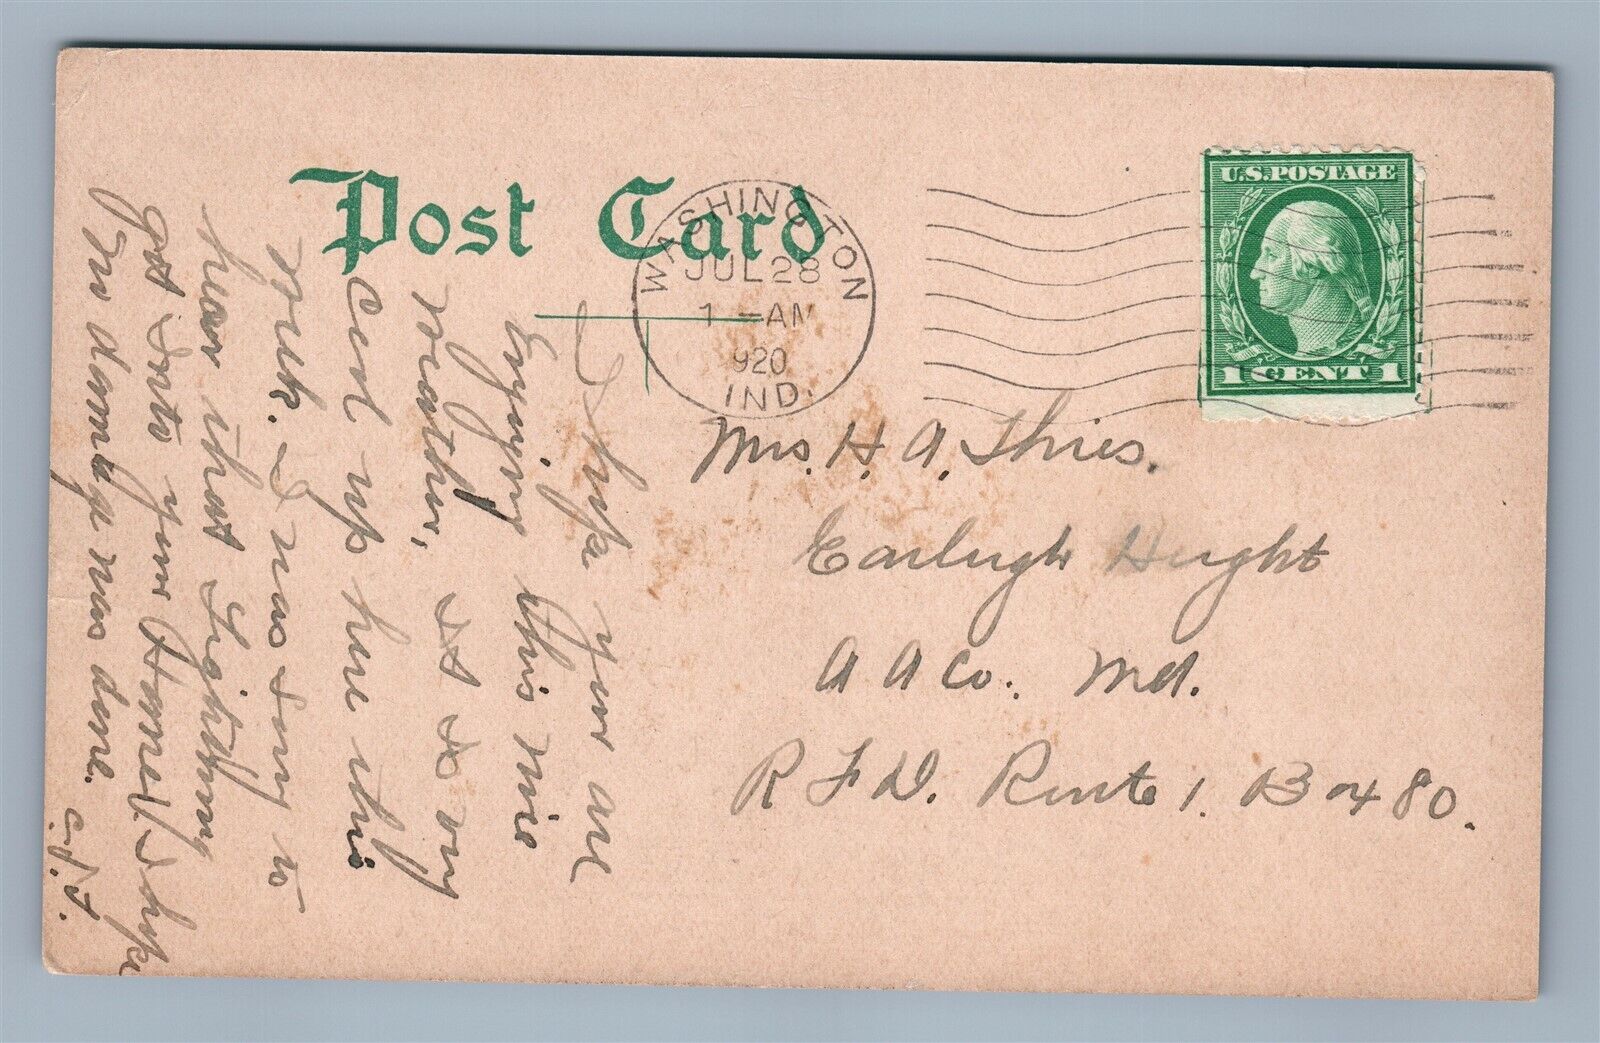 Post Card
WASHINGTON
JUL 28
1 - AM
920
IND.
U.S.POSTAGE
1 CENT 1
Mrs. H. A. Thies.
Earleigh Height
A A Co. Md.
R F D. Route 1. Box 80.
I hope your are
Enjoying this nice
Weather, It is very
Cool up here this
week. I was sorry to
hear that Lightning
got into your Home. I hope
No damage was done.
C. J. T.